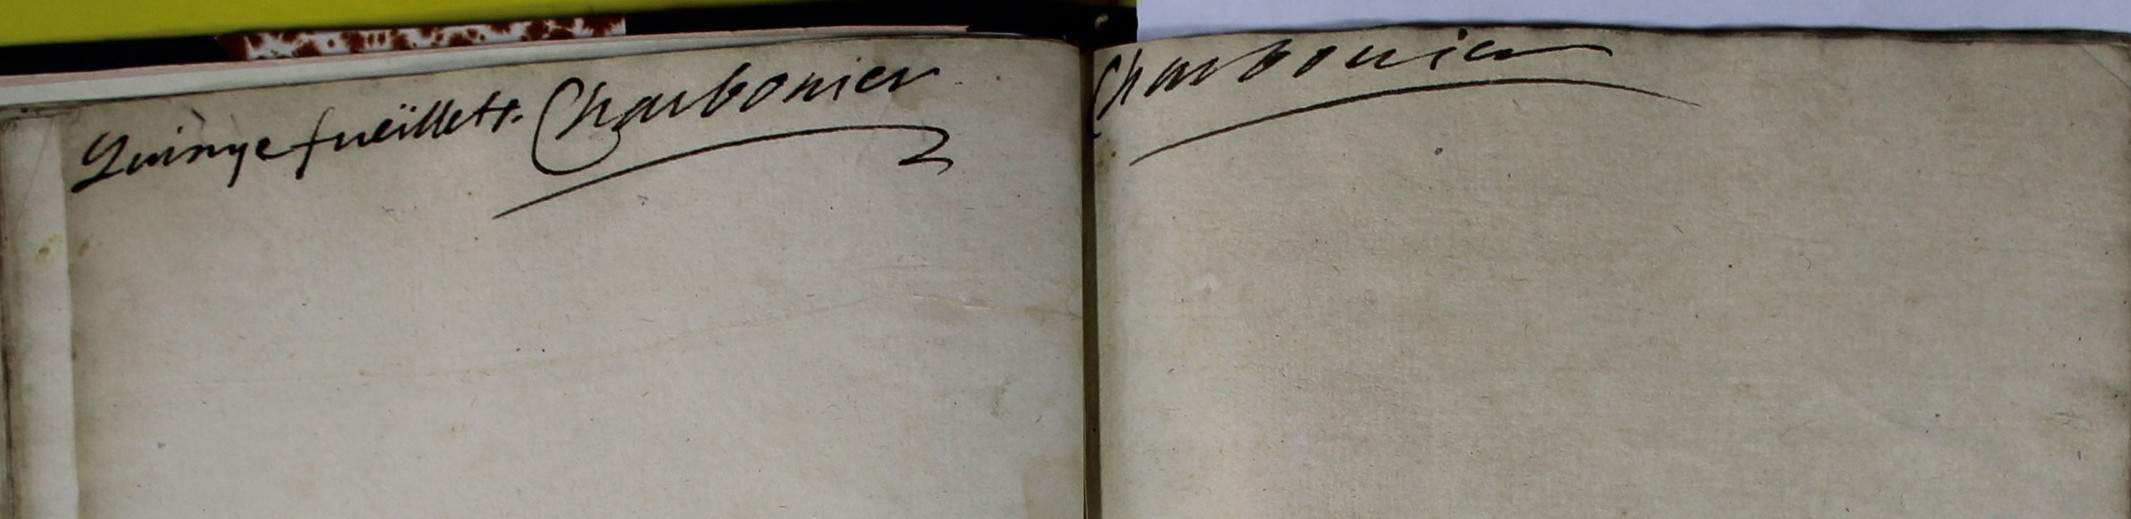 Quinze fueïllets. Charbonier
Charbonier